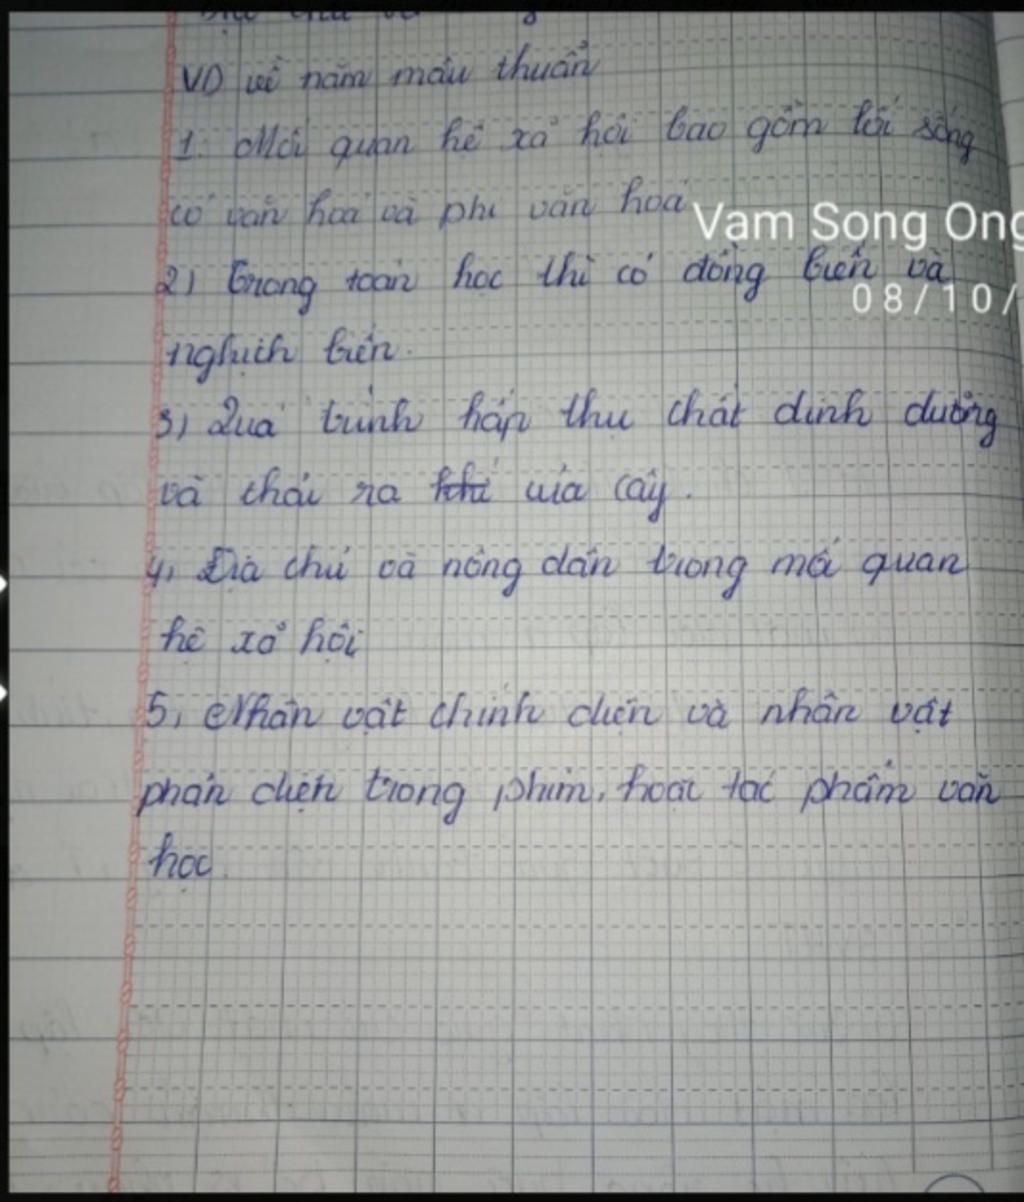 VD về năm mâu thuẩn
1. Mối quan hệ xả hội bao gồm lối sống
có văn hoá và phi văn hoá
Vam Song Ong
2) Trong toán học thì có đồng biến và
08/10/
nghịch biến.
3) Quá trình hấp thu chất dinh dưỡng
và thải ra của cây.
4, Địa chủ và nông dân trong mối quan
hệ xả hội
5, Nhân vật chính diện và nhân vật
phản diện trong phim, hoặc tác phẩm văn
học.